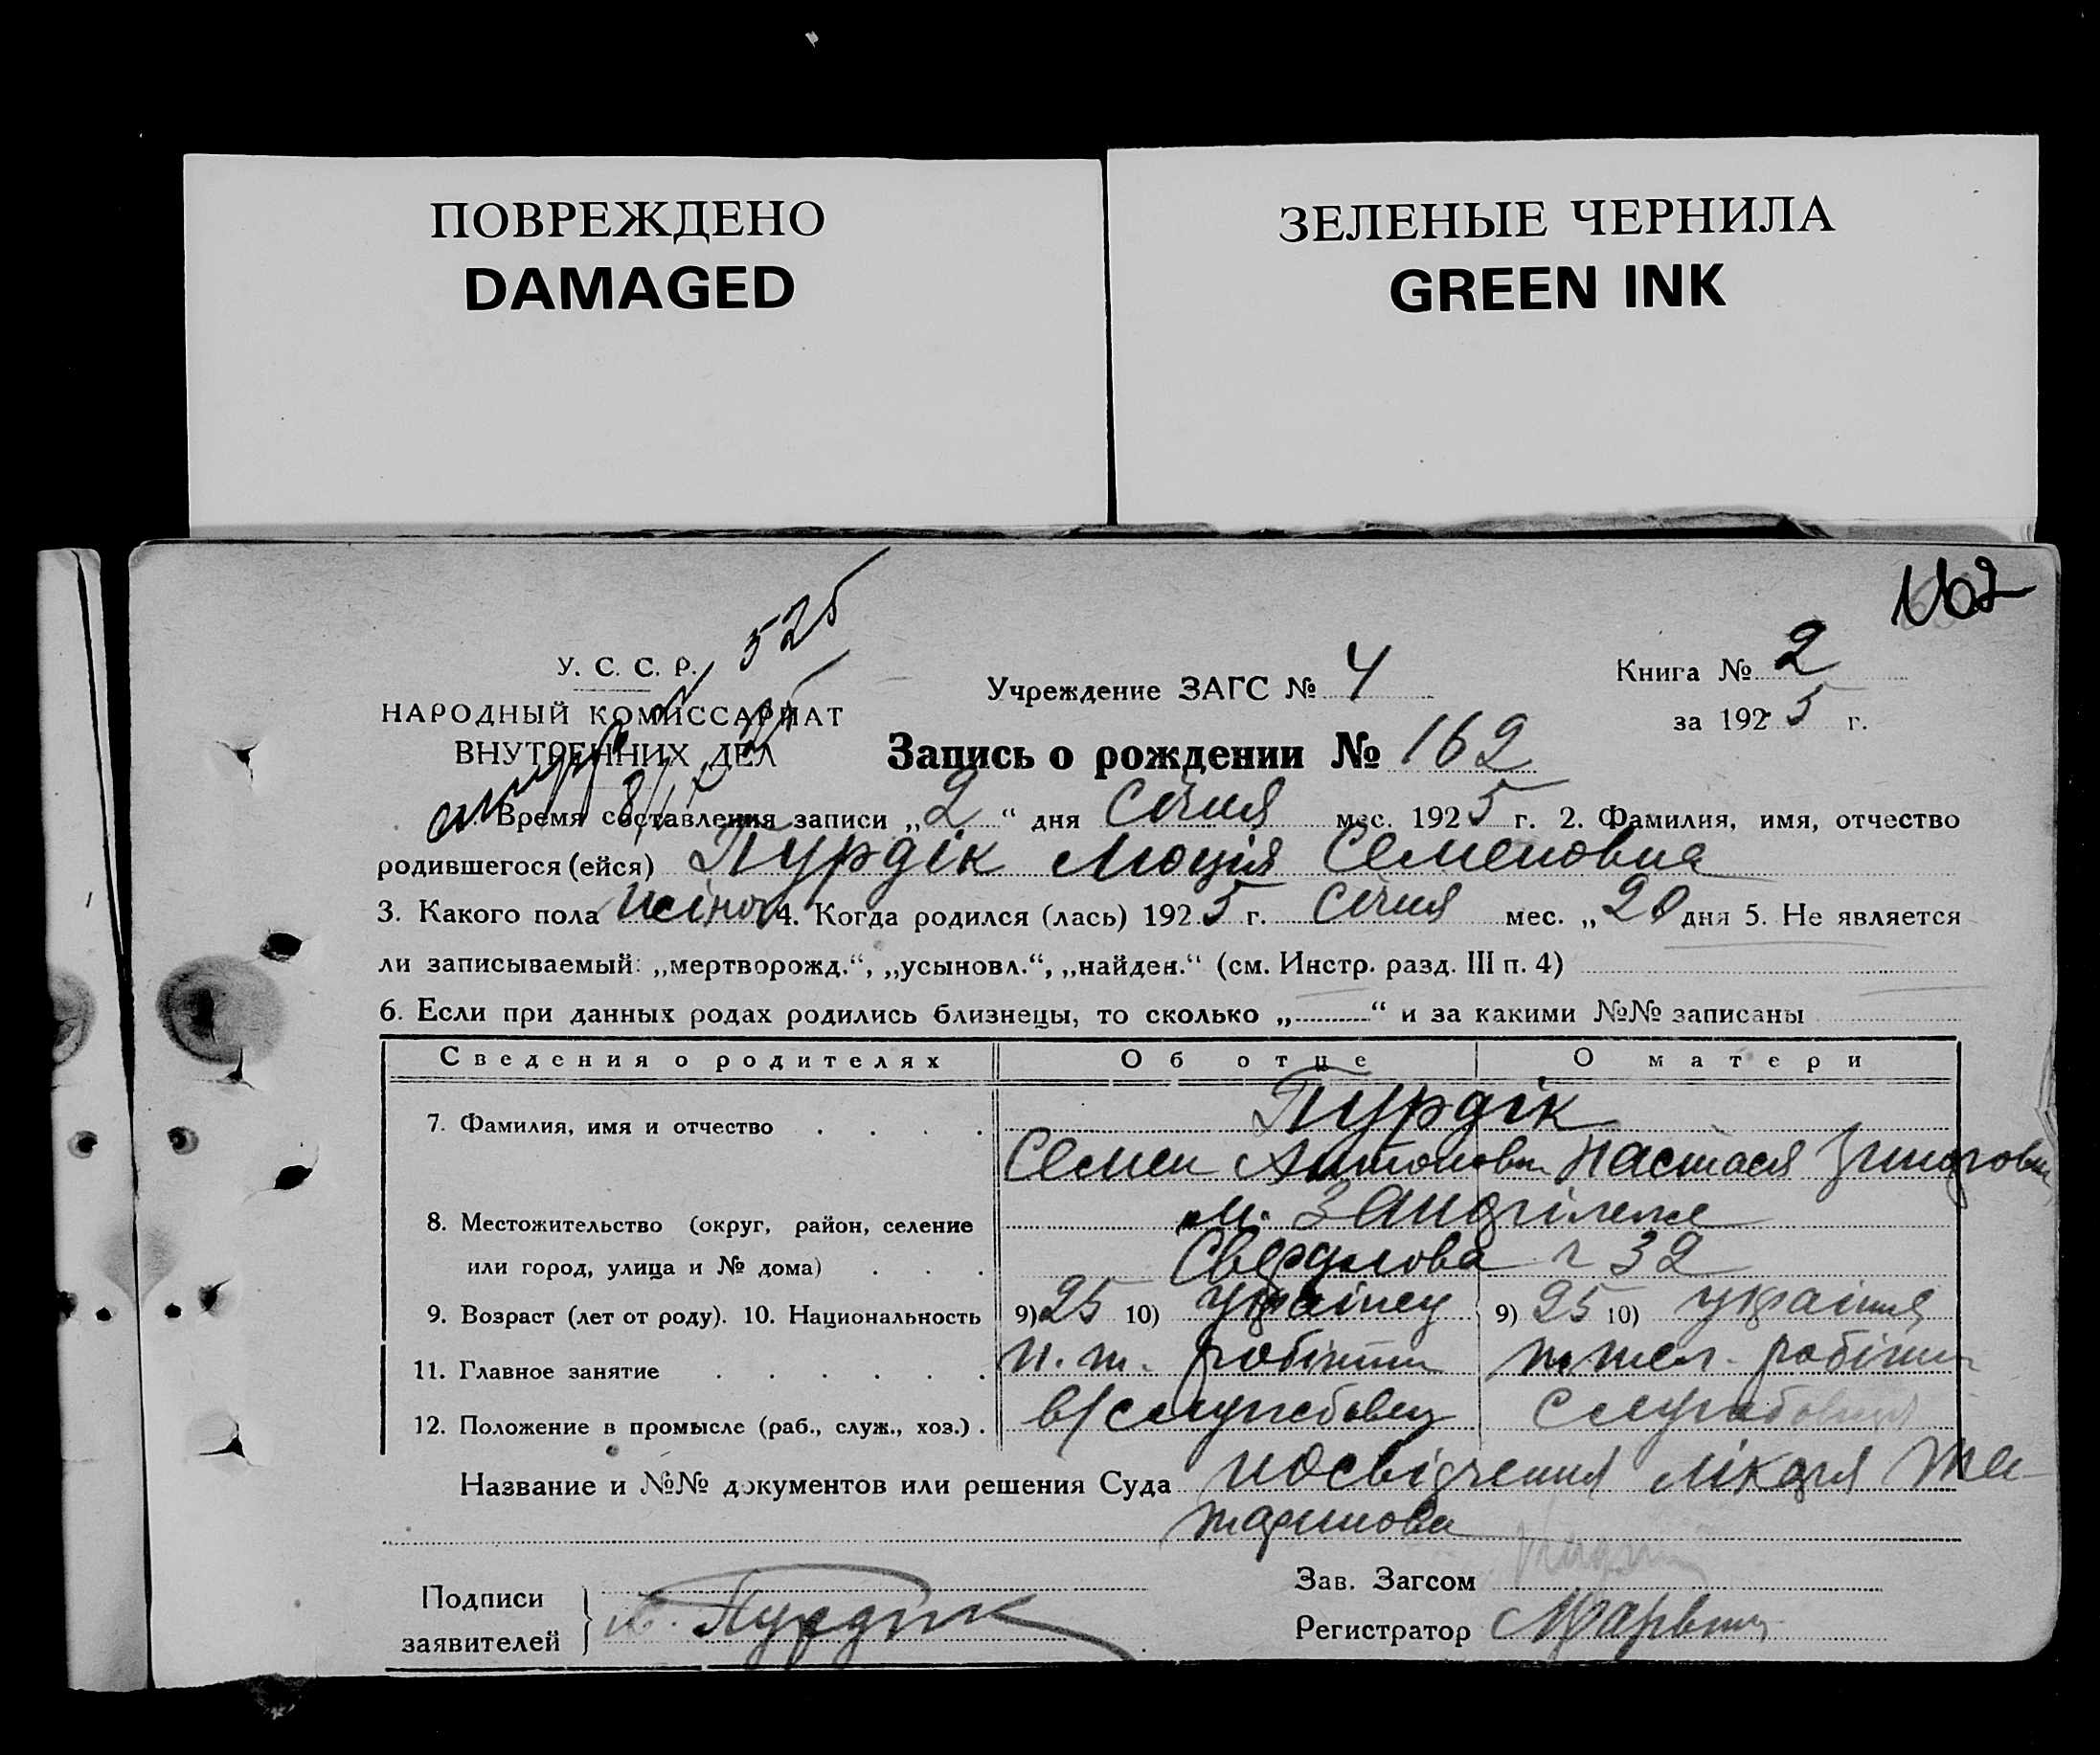 ПОВРЕЖДЕНО
DAMAGED
ЗЕЛЕНЫЕ ЧЕРНИЛА
GREEN INK
162
525
У. С. С. Р.
НАРОДНЫЙ КОМИССАРИАТ
ВНУТРЕННИХ ДЕЛ
Учреждение ЗАГС № 4
Книга № 2
за 1925 г.
Запись о рождении № 162
Время составления записи „2“ дня Січня мес. 1925 г. 2. Фамилия, имя, отчество
родившегося (ейся) Пурдік Люція Семеновна
3. Какого пола жіноч 4. Когда родился (лась) 1925 г. Січня мес. „20 дня 5. Не является
ли записываемый: „мертворожд.“, „усыновл.“, „найден.“ (см. Инстр. разд. III п. 4)
6. Если при данных родах родились близнецы, то сколько „ “ и за какими №№ записаны
Сведения о родителях Об отце О матери
7. Фамилия, имя и отчество Пурдік
Семен Антонович Настася
8. Местожительство (округ, район, селение м.
или город, улица и № дома) Свердлова 32
9. Возраст (лет от роду). 10. Национальность 9) 25 10) українец 9) 25 10) україн
11. Главное занятие робітник робітн
12. Положение в промысле (раб., служ., хоз.) в/службовец службовец
Название и №№ документов или решения Суда посвідчення лікаря
Подписи
заявителей Пурдик
Зав. Загсом
Регистратор